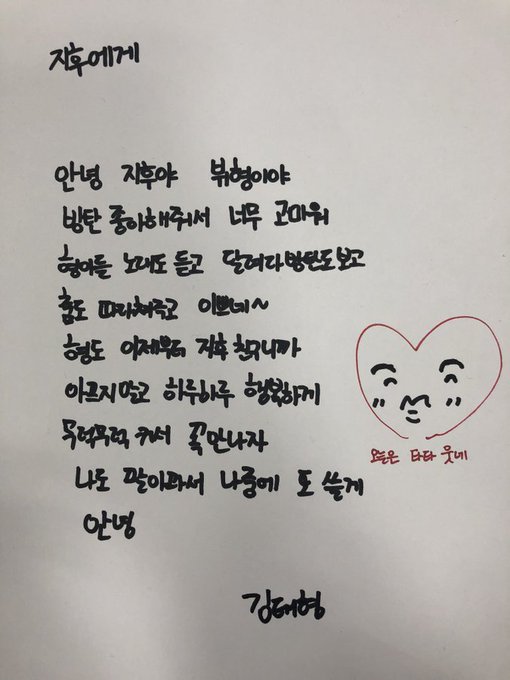 지후에게
안녕 지후야 뷔형이야
방탄 좋아해줘서 너무 고마워
형아들 노래도 듣고 달려라방탄도보고
춤도 따라쳐주고 이쁘네~
형도 이제부터 지후친구니까
아프지말고 하루하루 행복하게
무럭무럭 커서 꼭만나자
나도 팔아파서 나중에 또 쓸게
안녕
오늘은 타타 웃네
김태형